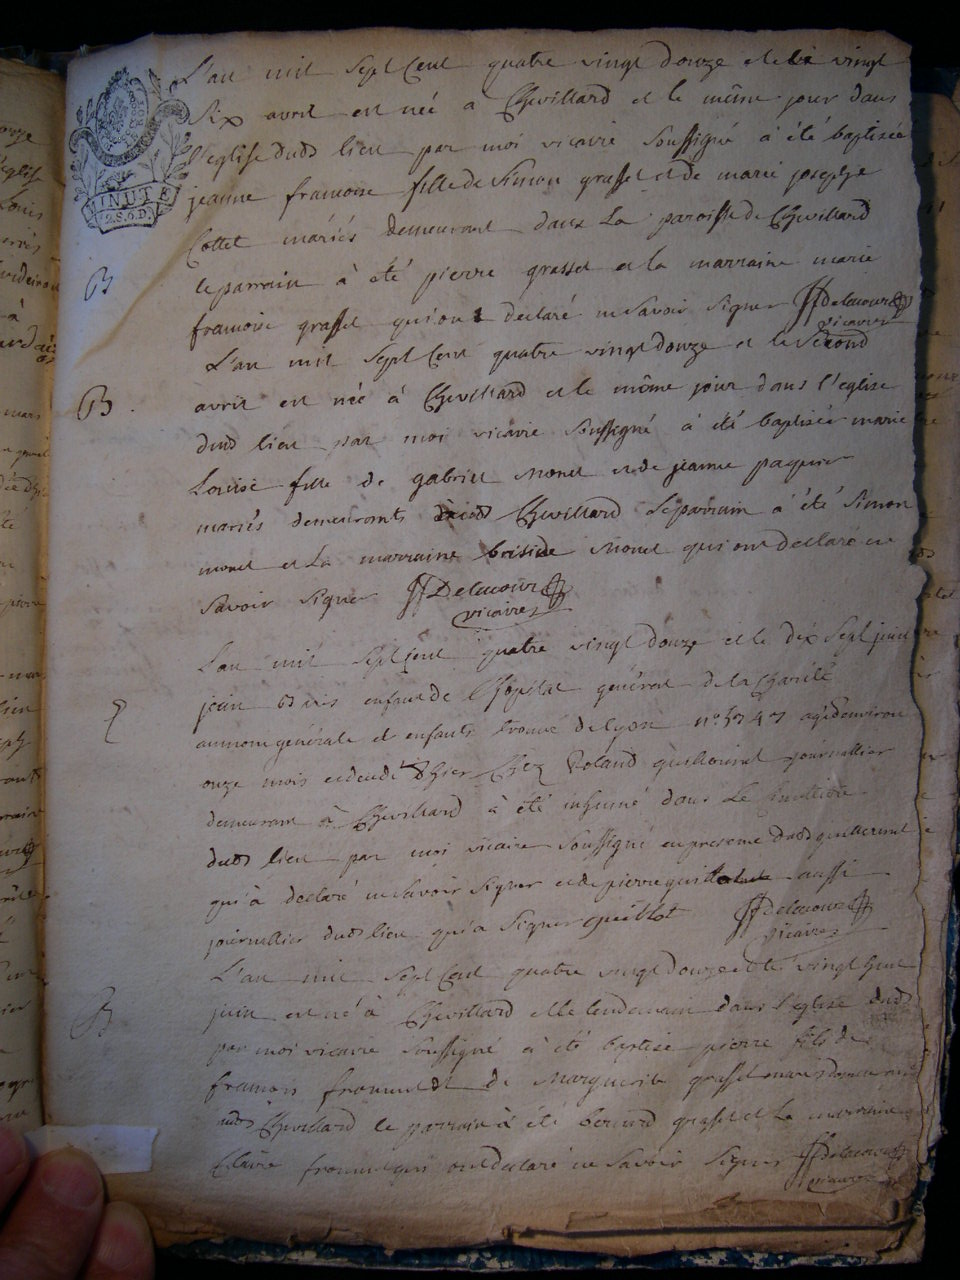 L'an mil sept Cent quatre vingt douze et le vingt
six avril est née a Chevillard et le même jour dans
l'eglise dudt lieu par moi vicaire soussigné à été baptisée
jeanne francoise fille de Simon grasset et de marie josephe
Collet mariés demeurant dans la paroisse de Chevillard
le parrain à été pierre grasset et la marraine marie
francoise grasset qui ont declaré ne savoir signer Delacour
vicaire
L'an mil sept Cent quatre vingt douze et le second
avril est née à Chevillard et le même jour dans l'eglise
dudt lieu par moi vicaire soussigné à été baptisée marie
Louise fille de gabriel monet et de jeanne paquier
mariés demeurants Chevillard le parrain à été Simon
monet et la marraine monet qui ont declaré ne
savoir signer Delacour
vicaire
L'an mil sept Cent quatre vingt douze et le dix sept juin
jean enfant de l'hopital general de la Charité
aumone generale et enfants trouvé de lyon n° agé d'environ
onze mois et decedé hier Chez Roland journallier
demeurant à Chevillard à été inhumé dans le cimetiere
dudt lieu par moi vicaire soussigné en presence dudt
qui à declaré ne savoir signer et de pierre guillot aussi
journallier dudt lieu qui a signer guillot Delacour
vicaire
L'an mil sept Cent quatre vingt douze et le vingt huit
juin est né à Chevillard et le lendemain dans l'eglise dudt
par moi vicaire soussigné à été baptisé pierre fils de
francois et de marguerite grasset mariés demeurant
audt Chevillard le parrain à été bernard grasset et la marraine
Claire qui ont declaré ne savoir signer Delacour
vicaire
B
B
B
MINUTE
2.S.6.D.